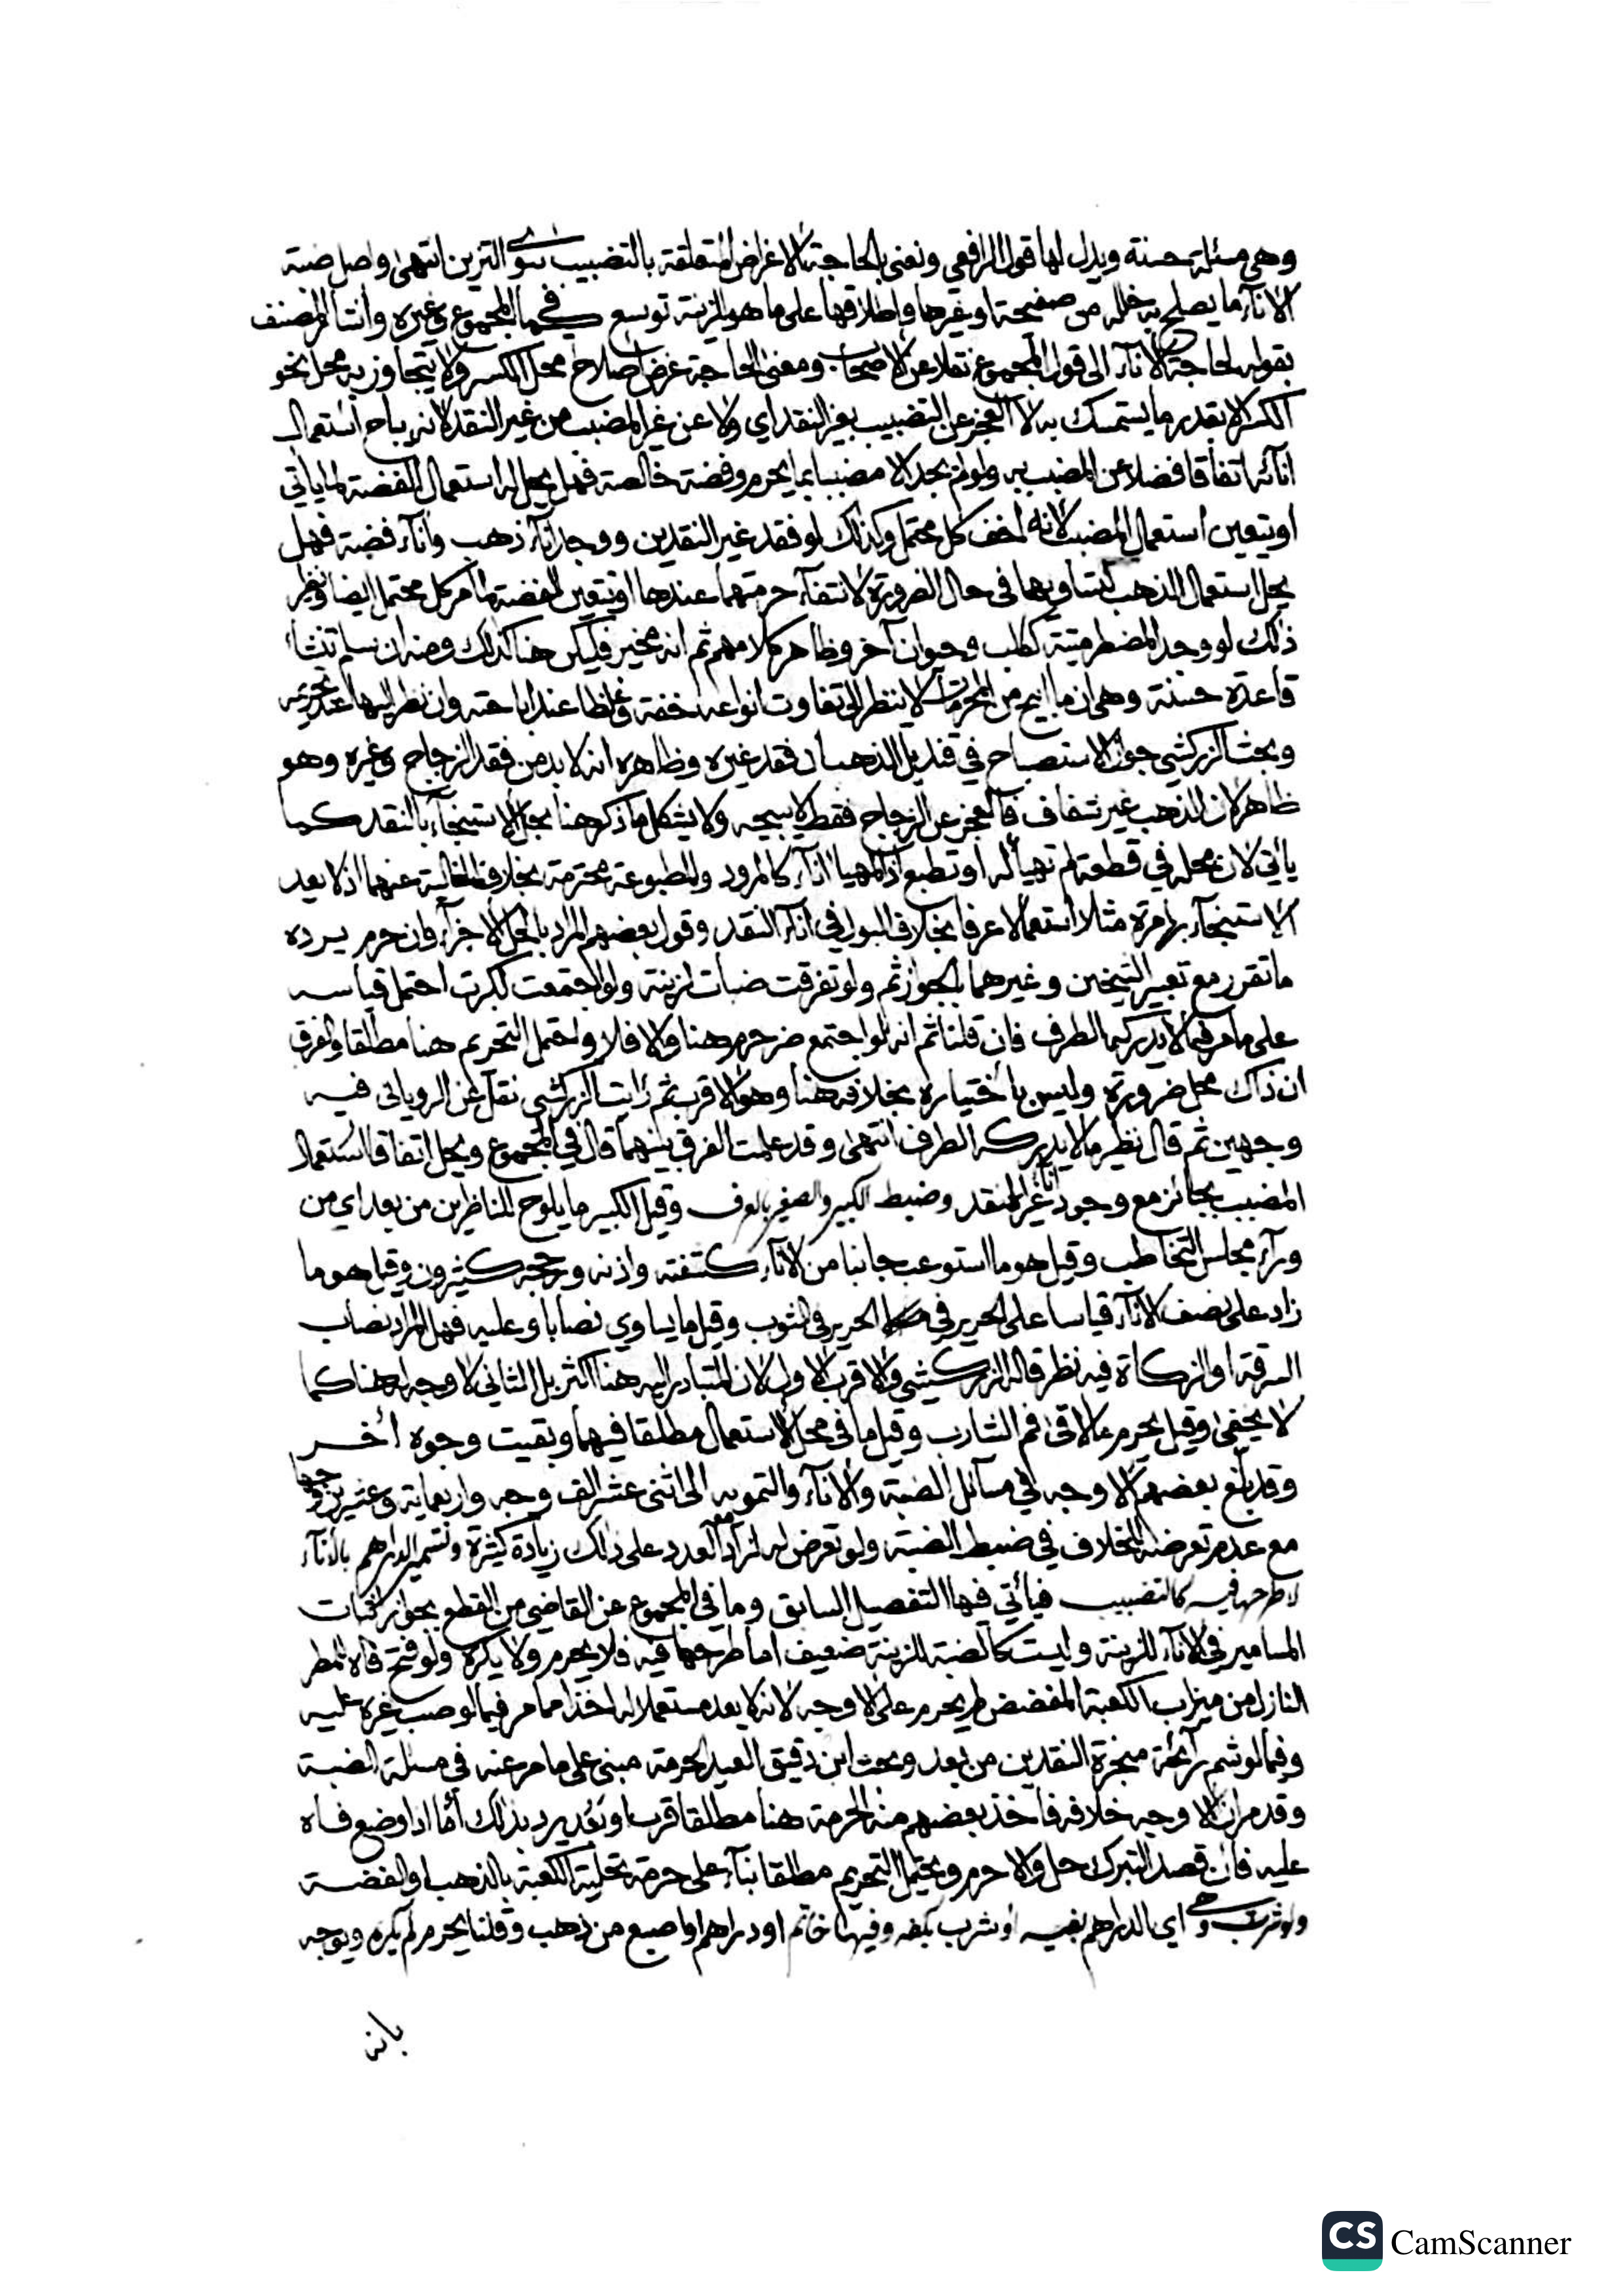 وهي مسئلة حسنة ويدل لها قول الرافعي ونعني بالحاجة الاغراض المتعلقة بالتضبيب سوى التزين انتهى واصل ضبة
الاناء ما يصلح به خلله من صفيحة او غيرها واطلاقها على ما هو للزينة توسع كما في المجموع وغيره واشار المصنف
بقوله لحاجة الاناء الى قول المجموع نقلا عن الاصحاب ومعنى الحاجة غرض اصلاح محل الكسر ولا يتجاوز به محل نحو
الكسر الا بقدر ما يستمسك به لا العجز عن التضبيب بغير النقد اي ولا عن غير المضبب من غير النقد لانه يباح استعمال
انائه اتفاقا فضلا عن المضبب به ولو لم يجد الا مضببا بما يحرم وفضة خالصة فهل يحل له استعمال الفضة لما ياتي
او يتعين استعمال المضبب لانه اخف كل محتمل وكذلك لو فقد غير النقدين ووجد اناء ذهب واناء فضة فهل
يحل استعمال الذهب لتساويهما في حال الضرورة لانتفاء حرمتهما عندها او يتعين الفضة لما مر كل محتمل ايضا ونظير
ذلك لو وجد المضطر ميتة كلب وحيوان آخر وظاهر كلامهم ثم انه مخير فليكن هنا كذلك ومنه ان سلم تنشأ
قاعدة حسنة وهي ان ما ابيح من المحرمات لا ينظر الى تفاوت انواعه خفة وغلظا عند اباحته وان نظر اليها عند تحريمه
وبحث الزركشي جواز الاستصباح في قنديل الذهب ان فقد غيره وظاهره انه لا بد من فقد الزجاج وغيره وهو
ظاهر لان الذهب غير شفاف فالعجز عن الزجاج فقط لا يبيحه ولا يشكل ما ذكر هنا بحل الاستنجاء بالنقد كما
ياتي لان محله في قطعة لم تهيأ له او تطبع اذ المهيا اناء كالمرود والمطبوعة محترمة بخلاف الخالية عنهما اذ لا يعد
الاستنجاء بها مرة مثلا استعمالا عرفا بخلاف البول في اناء النقد وقول بعضهم المراد بالحل الاجزاء وان حرم يرده
ما تقرر مع تعبير الشيخين وغيرهما بالجواز ثم ولو تفرقت ضبات لزينة ولو اجتمعت لكبرت احتمل قياسه
على ما مر فيما لا يدركه الطرف فان قلنا ثم انه لو اجتمع ضر حرم هنا والا فلا واحتمل التحريم هنا مطلقا والفرق
ان ذاك محل ضرورة وليس باختياره بخلافه هنا وهو الاقرب ثم رايت الزركشي نقل عن الروياني فيه
وجهين ثم قال نظير ما لا يدركه الطرف انتهى وقد علمت الفرق بينهما قال في المجموع ويحل اتفاقا استعمال
المضبب بجائز مع وجود اناء غير النقد وضبط الكبير والصغير بالعرف وقيل الكبير ما يلوح للناظرين من بعد اي من
وراء مجلس التخاطب وقيل هو ما استوعب جانبا من الاناء كشفته واذنه ورجحه كثيرون وقيل هو ما
زاد على نصف الاناء قياسا على الحرير في الحرير في الثوب وقيل ما يساوي نصابا وعليه فهل المراد نصاب
السرقة او الزكاة فيه نظر قاله الزركشي والاقرب الاول لان المتبادر اليه هنا اكثر بل الثاني لا وجه له هنا كما
لا يخفى وقيل يحرم ما لاقى فم الشارب وقيل ما في محل الاستعمال مطلقا فيهما وبقيت وجوه أخر
وقد بلغ بعضهم الاوجه في مسائل الضبة والاناء والتمويه الى اثنى عشر الف وجه واربعماية وعشرين وجها
مع عدم تعرضه للخلاف في ضبط الضبة ولو تعرض له لزاد العدد على ذلك زيادة كثيرة وتسمير الدراهم بالاناء
لا طرحها فيه كالتضبيب فيأتي فيها التفصيل السابق وما في المجموع عن القاضي من القطع بجواز اثبات
المسامير في الاناء للزينة وليست كالضبة للزينة ضعيف اما طرحها فيه فلا يحرم ولا يكره ولو فتح فاه للمطر
النازل من ميزاب الكعبة المفضض لم يحرم على الاوجه لانه لا يعد مستعملا له اخذا مما مر فيما لو صب غيره عليه
وفيما لو شم رائحة مبخرة النقدين من بعد وبحث ابن دقيق العيد الحرمة مبني على ما مر عنه في مسئلة الضبة
وقد مر ان الاوجه خلافه فاخذ بعضهم منه الحرمة هنا مطلقا قرب او بعد يرد بذلك أما اذا وضع فاه
عليه فان قصد التبرك حل والا حرم ويحتمل التحريم مطلقا بناء على حرمة تحلية الكعبة بالذهب والفضة
ولو شرب وهي اي الدراهم بفيه او شرب بكفه وفيها خاتم او دراهم او اصبع من ذهب وقلنا يحرم لم يكره ويوجه
بانه
CamScanner